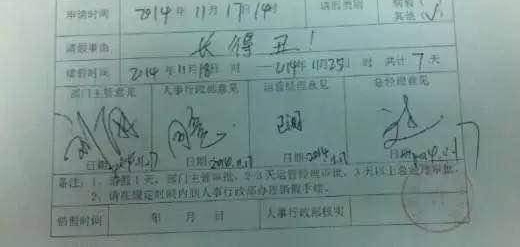 申请时间 2014年11月17日 请假类别 病假( 其他(√)
请假事由 长得丑！
请假时间 2014年11月18日 时 — 2014年11月25日 时 共计 7 天
部门主管意见 人事行政部意见 运营经理意见 总经理意见
日期: 日期:2014.11.17 日期:2014.11.17 日期:2014.11.17
备注：1、请假1天，部门主管审批，2-3天运营经理审批，3天以上总经理审批。
2、请在规定时候内到人事行政部办理销假手续。
销假时间 年 月 日 人事行政部核实